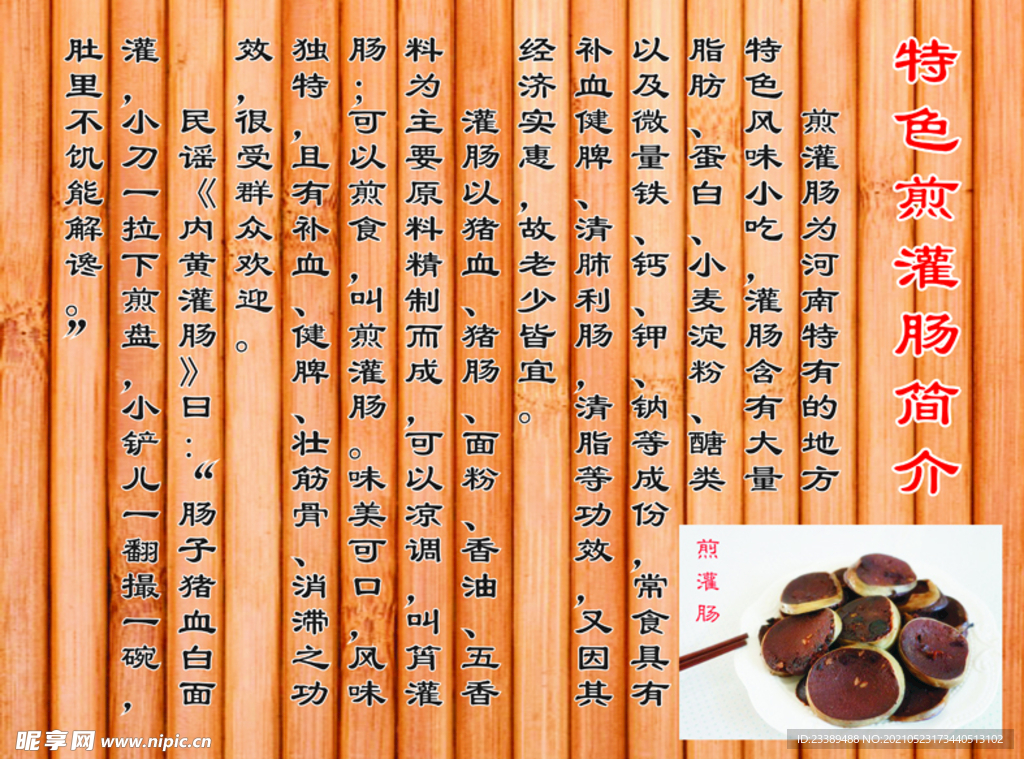 特色煎灌肠简介
煎灌肠为河南特有的地方
特色风味小吃，灌肠含有大量
脂肪、蛋白、小麦淀粉、醣类
以及微量铁、钙、钾、钠等成份，常食具有
补血健脾、清肺利肠，清脂等功效，又因其
经济实惠，故老少皆宜。
灌肠以猪血、猪肠、面粉、香油、五香
料为主要原料精制而成，可以凉调，叫筲灌
肠；可以煎食，叫煎灌肠。味美可口，风味
独特，且有补血、健脾、壮筋骨、消滞之功
效，很受群众欢迎。
民谣《内黄灌肠》曰：“肠子猪血白面
灌，小刀一拉下煎盘，小铲儿一翻撮一碗，
肚里不饥能解馋。”
煎灌肠
昵享网 www.nipic.cn
ID:23389488 NO:20210523173440513102